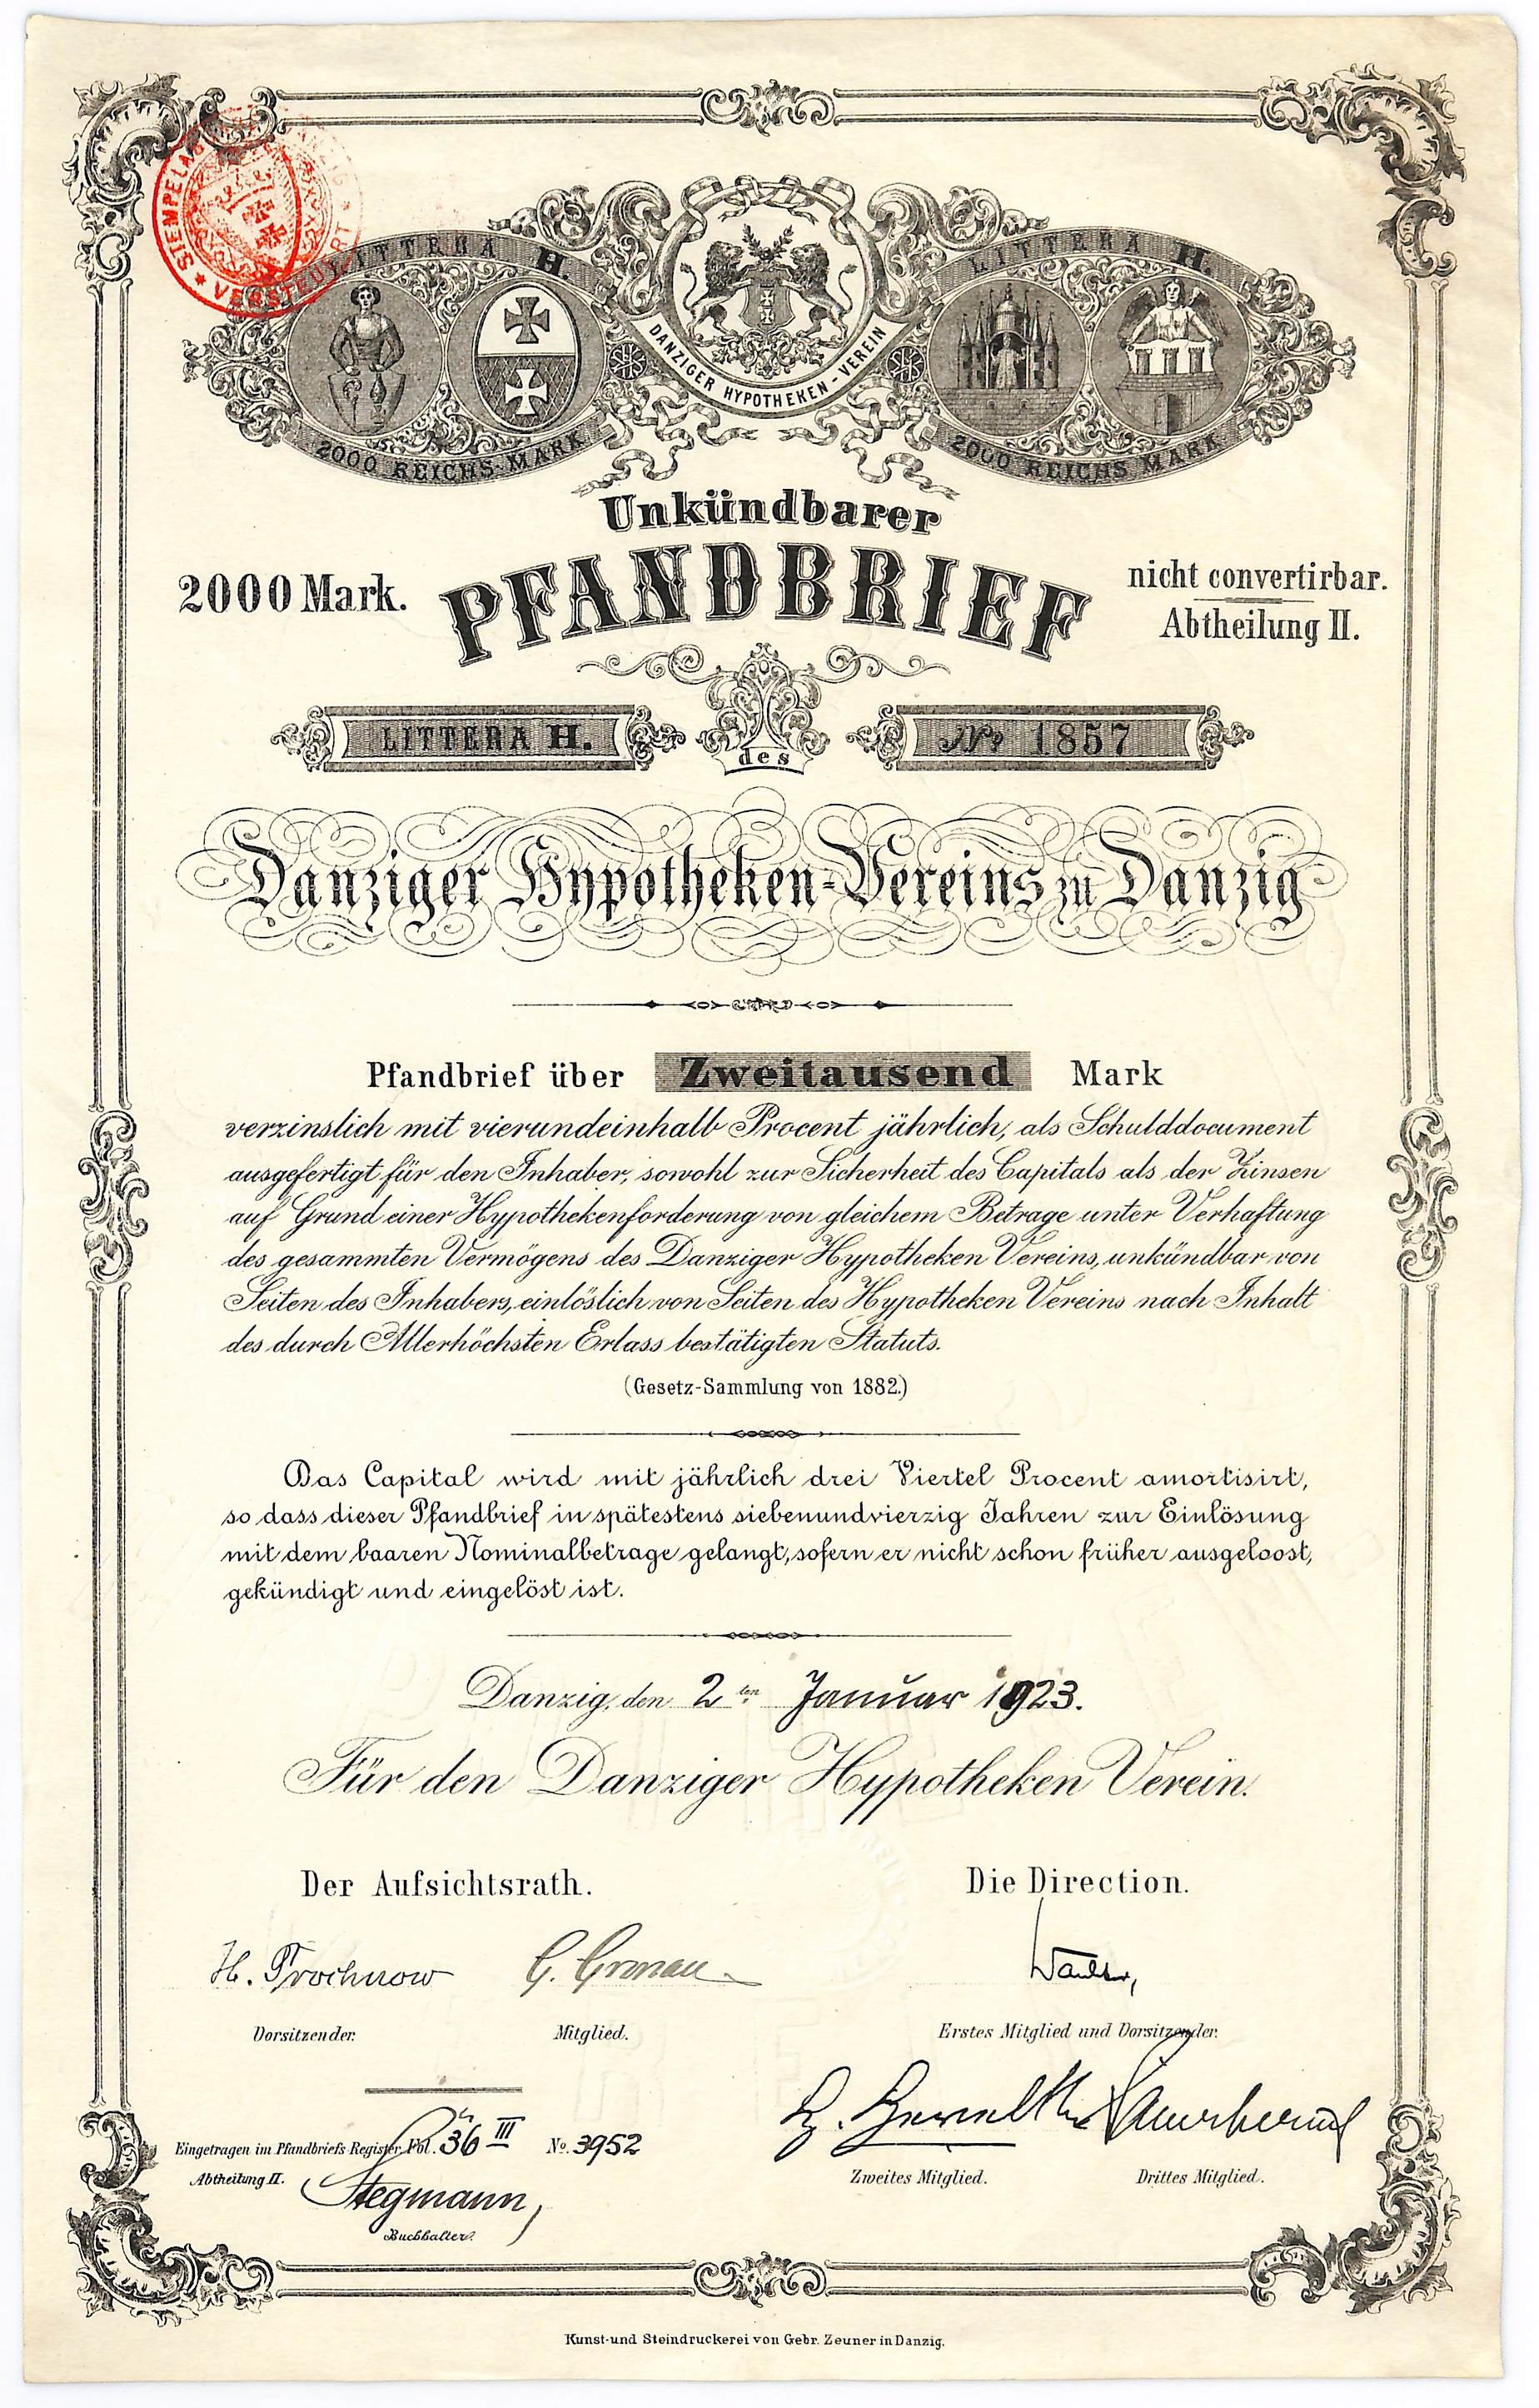 STEMPELABG
VERSTEUERT
LITTERA H.
LITTERA H.
DANZIGER HYPOTHEKEN-VEREIN
2000 REICHS-MARK
2000 REICHS MARK
Unkündbarer
2000 Mark.
PFANDBRIEF
nicht convertirbar.
Abtheilung II.
LITTERA H.
des
No 1857
Danziger Hypotheken-Vereins zu Danzig
Pfandbrief über Zweitausend Mark
verzinslich mit vierundeinhalb Procent jährlich, als Schulddocument
ausgefertigt für den Inhaber, sowohl zur Sicherheit des Capitals als der Zinsen
auf Grund einer Hypothekenforderung von gleichem Betrage unter Verhaftung
des gesammten Vermögens des Danziger Hypotheken Vereins, unkündbar von
Seiten des Inhabers, einlöslich von Seiten des Hypotheken Vereins nach Inhalt
des durch Allerhöchsten Erlass bestätigten Statuts.
(Gesetz-Sammlung von 1882.)
Das Capital wird mit jährlich drei Viertel Procent amortisirt,
so dass dieser Pfandbrief in spätestens siebenundvierzig Jahren zur Einlösung
mit dem baaren Nominalbetrage gelangt, sofern er nicht schon früher ausgeloost,
gekündigt und eingelöst ist.
Danzig, den 2ten Januar 1923.
Für den Danziger Hypotheken Verein.
Der Aufsichtsrath.
Die Direction.
H. Prochnow
G. Gronau
Vorsitzender.
Mitglied.
Erstes Mitglied und Vorsitzender.
Eingetragen im Pfandbriefs Register Fol. 36 III No. 3952
Abtheilung II.
Stegmann,
Buchhalter.
Zweites Mitglied.
Drittes Mitglied.
Kunst-und Steindruckerei von Gebr. Zeuner in Danzig.